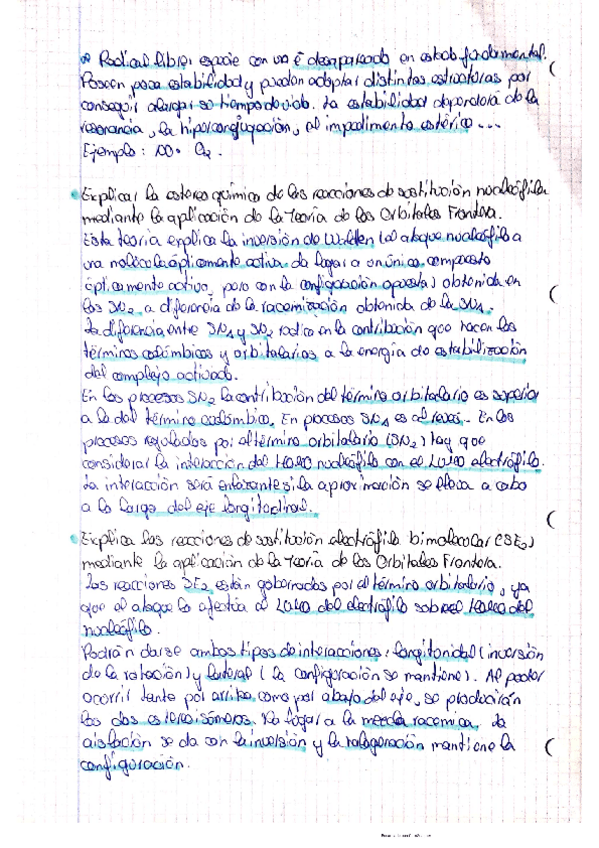 Radical libre: especie con un e⁻ desapareado en estado fundamental.
Poseen poca estabilidad y pueden adoptar distintas estructuras por
conseguir alargar su tiempo de vida. La estabilidad dependerá de la
resonancia, la hiperconjugación, el impedimento estérico ...
Ejemplo:
Explicar la estereoquímica de las reacciones de sustitución nucleófila
mediante la aplicación de la Teoría de los Orbitales Frontera.
Esta teoría explica la inversión de Walden (el ataque nucleófilo a
una molécula ópticamente activa da lugar a un único compuesto
ópticamente activo, pero con la configuración opuesta) obtenida en
las SN2 a diferencia de la racemización obtenida de la SN1.
La diferencia entre SN1 y SN2 radica en la contribución que hacen los
términos culómbicos y orbitalarios a la energía de estabilización
del complejo activado.
En los procesos SN2 la contribución del término orbitalario es superior
a la del término culómbico. En procesos SN1 es al revés. En los
procesos regulados por el término orbitalario (SN2) hay que
considerar la interacción del HOMO nucleófilo con el LUMO electrófilo.
La interacción será enlazante si la aproximación se lleva a cabo
a lo largo del eje longitudinal.
Explica las reacciones de sustitución electrófila bimolecular (SE2)
mediante la aplicación de la Teoría de los Orbitales Frontera.
Las reacciones SE2 están gobernadas por el término orbitalario, ya
que el ataque lo efectúa el LUMO del electrófilo sobre el HOMO del
nucleófilo.
Podrán darse ambos tipos de interacciones: longitudinal (inversión
de la rotación) y lateral (la configuración se mantiene). Al poder
ocurrir tanto por arriba como por abajo del eje, se producirán
los dos estereoisómeros. Da lugar a la mezcla racémica. La
se da con la inversión y la mantiene la
configuración.